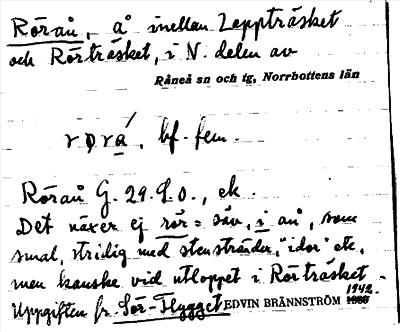 Rörån, å mellan Lappträsket
och Rörträsket, i N. delen av
Råneå sn och tg, Norrbottens län
rørá, bf. fem.
Rörån G. 29. S.O., ek.
Det växer ej rör = säv, i ån, som
smal, stridig med stenstränder, "idor" etc,
men kanske vid utloppet i Rörträsket.
Uppgiften fr. Sör-Flygget EDVIN BRÄNNSTRÖM 1942